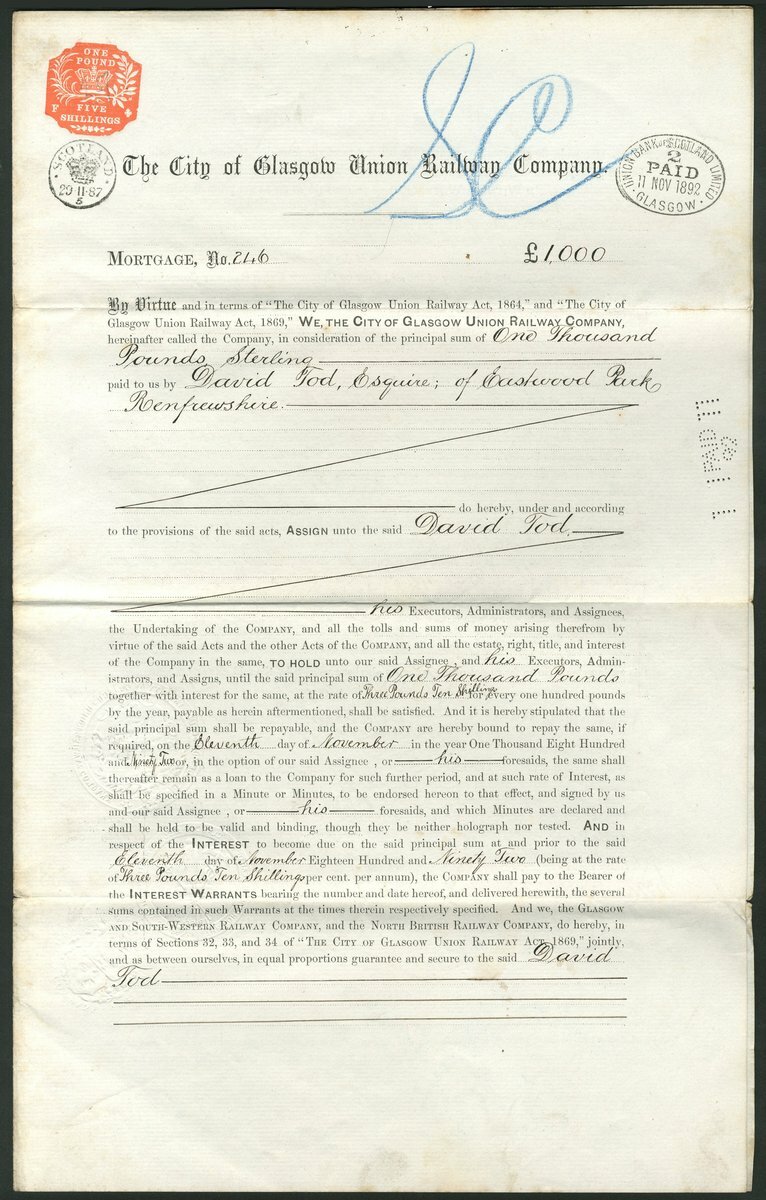 ONE
POUND
F
FIVE
SHILLINGS
SCOTLAND
29·11·87
5
The City of Glasgow Union Railway Company.
UNION BANK OF SCOTLAND LIMITED
2
PAID
11 NOV 1892
GLASGOW
MORTGAGE, No. 246
£1,000
By Virtue and in terms of "The City of Glasgow Union Railway Act, 1864," and "The City of
Glasgow Union Railway Act, 1869," WE, THE CITY OF GLASGOW UNION RAILWAY COMPANY,
hereinafter called the Company, in consideration of the principal sum of One Thousand
Pounds Sterling
paid to us by David Tod, Esquire; of Eastwood Park
Renfrewshire.
PAID
do hereby, under and according
to the provisions of the said acts, ASSIGN unto the said David Tod
his Executors, Administrators, and Assignees,
the Undertaking of the COMPANY, and all the tolls and sums of money arising therefrom by
virtue of the said Acts and the other Acts of the COMPANY, and all the estate, right, title, and interest
of the Company in the same, TO HOLD unto our said Assignee, and his Executors, Admin-
istrators, and Assigns, until the said principal sum of One Thousand Pounds
together with interest for the same, at the rate of Three Pounds Ten Shillings for every one hundred pounds
by the year, payable as herein aftermentioned, shall be satisfied. And it is hereby stipulated that the
said principal sum shall be repayable, and the COMPANY are hereby bound to repay the same, if
required, on the Eleventh day of November in the year One Thousand Eight Hundred
and Ninety Two or, in the option of our said Assignee, or his foresaids, the same shall
thereafter remain as a loan to the Company for such further period, and at such rate of Interest, as
shall be specified in a Minute or Minutes, to be endorsed hereon to that effect, and signed by us
and our said Assignee, or his foresaids, and which Minutes are declared and
shall be held to be valid and binding, though they be neither holograph nor tested. AND in
respect of the INTEREST to become due on the said principal sum at and prior to the said
Eleventh day of November Eighteen Hundred and Ninety Two (being at the rate
of Three Pounds Ten Shillings per cent. per annum), the COMPANY shall pay to the Bearer of
the INTEREST WARRANTS bearing the number and date hereof, and delivered herewith, the several
sums contained in such Warrants at the times therein respectively specified. And we, the GLASGOW
AND SOUTH-WESTERN RAILWAY COMPANY, and the NORTH BRITISH RAILWAY COMPANY, do hereby, in
terms of Sections 32, 33, and 34 of "THE CITY OF GLASGOW UNION RAILWAY ACT, 1869," jointly,
and as between ourselves, in equal proportions guarantee and secure to the said David
Tod